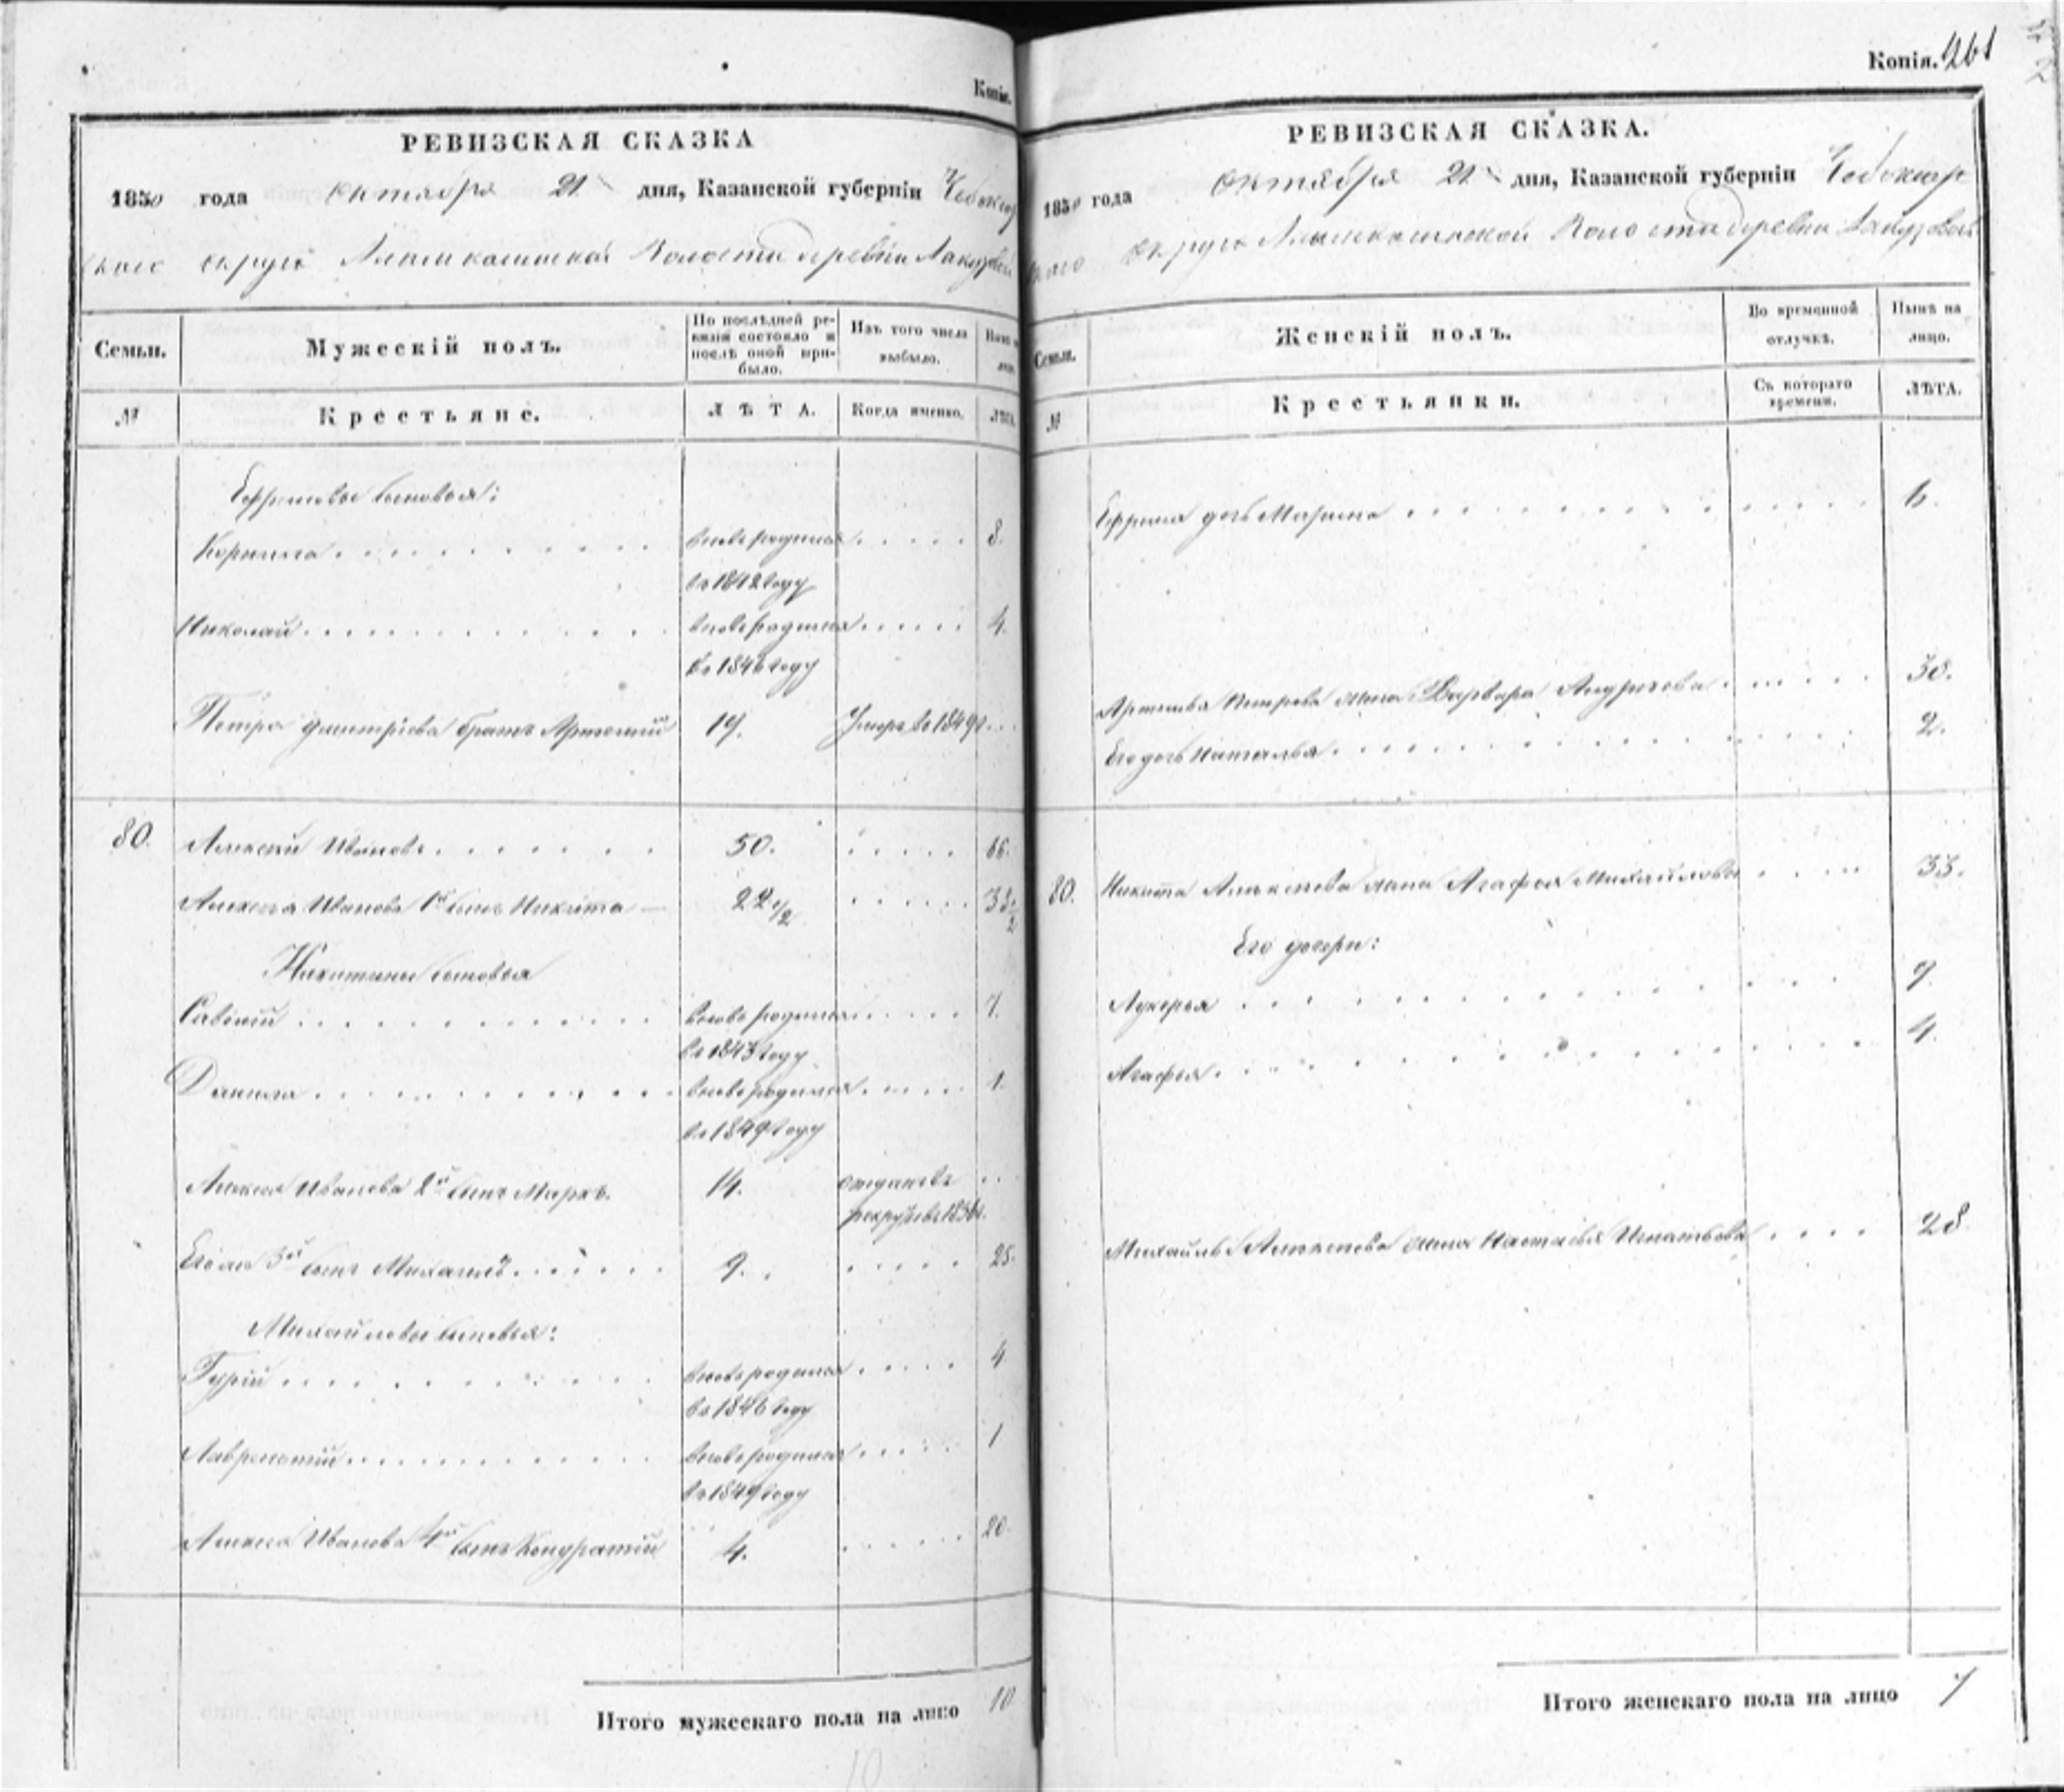 Копія.
РЕВИЗСКАЯ СКАЗКА
1850 года октября 21 дня, Казанской губерніи Чебоксар
скаго округа волости деревни
Семьи.
Мужескій полъ.
По послѣдней ревизіи состояло и послѣ оной прибыло.
Изъ того числа выбыло.
№
Крестьяне.
ЛѢТА.
Когда именно.
ЛѢТА.
Ефримовы сыновья:
Корнила 8.
вновь родился
въ 1842 году
Николай 4.
вновь родился
въ 1846 году
Петра Дмитріева братъ Артемій 19. Умеръ въ 1849 г.
80. Алексей Ивановъ 50. 66.
Алексея Иванова 1й сынъ Никита 22 1/2
Никитины сыновья
Савелій вновь родился 7.
въ 1843 году
Данила вновь родился 1.
въ 1849 году
Алексея Иванова 2й сынъ Марко. 14. отданъ въ
рекруты въ 1836 г.
Его же 3й сынъ Михайло 9. 25.
Михайловы сыновья:
Гурій вновь родился 4
въ 1846 году
Лаврентій вновь родился 1
въ 1849 году
Алексея Иванова 4й сынъ Кондратій 4. 20.
Итого мужескаго пола на лицо 10
10
Копія. 261
РЕВИЗСКАЯ СКАЗКА.
1850 года октября 21 дня, Казанской губерніи Чебоксар
скаго округа волости деревни
Семьи.
Женскій полъ.
Во временной отлучкѣ.
Нынѣ на лицо.
№
Крестьянки.
Съ котораго времени.
ЛѢТА.
Ефрима дочь Марина 6.
Артемья Петрова жена Варвара 38.
Его дочь Наталья 2.
80. Никиты Алексеева жена Агафья Михайлова 33.
Его дочери:
Лукерья 9.
Агафья 4.
Михайлы Алексеева жена Настасья Игнатьева 28
Итого женскаго пола на лицо 7